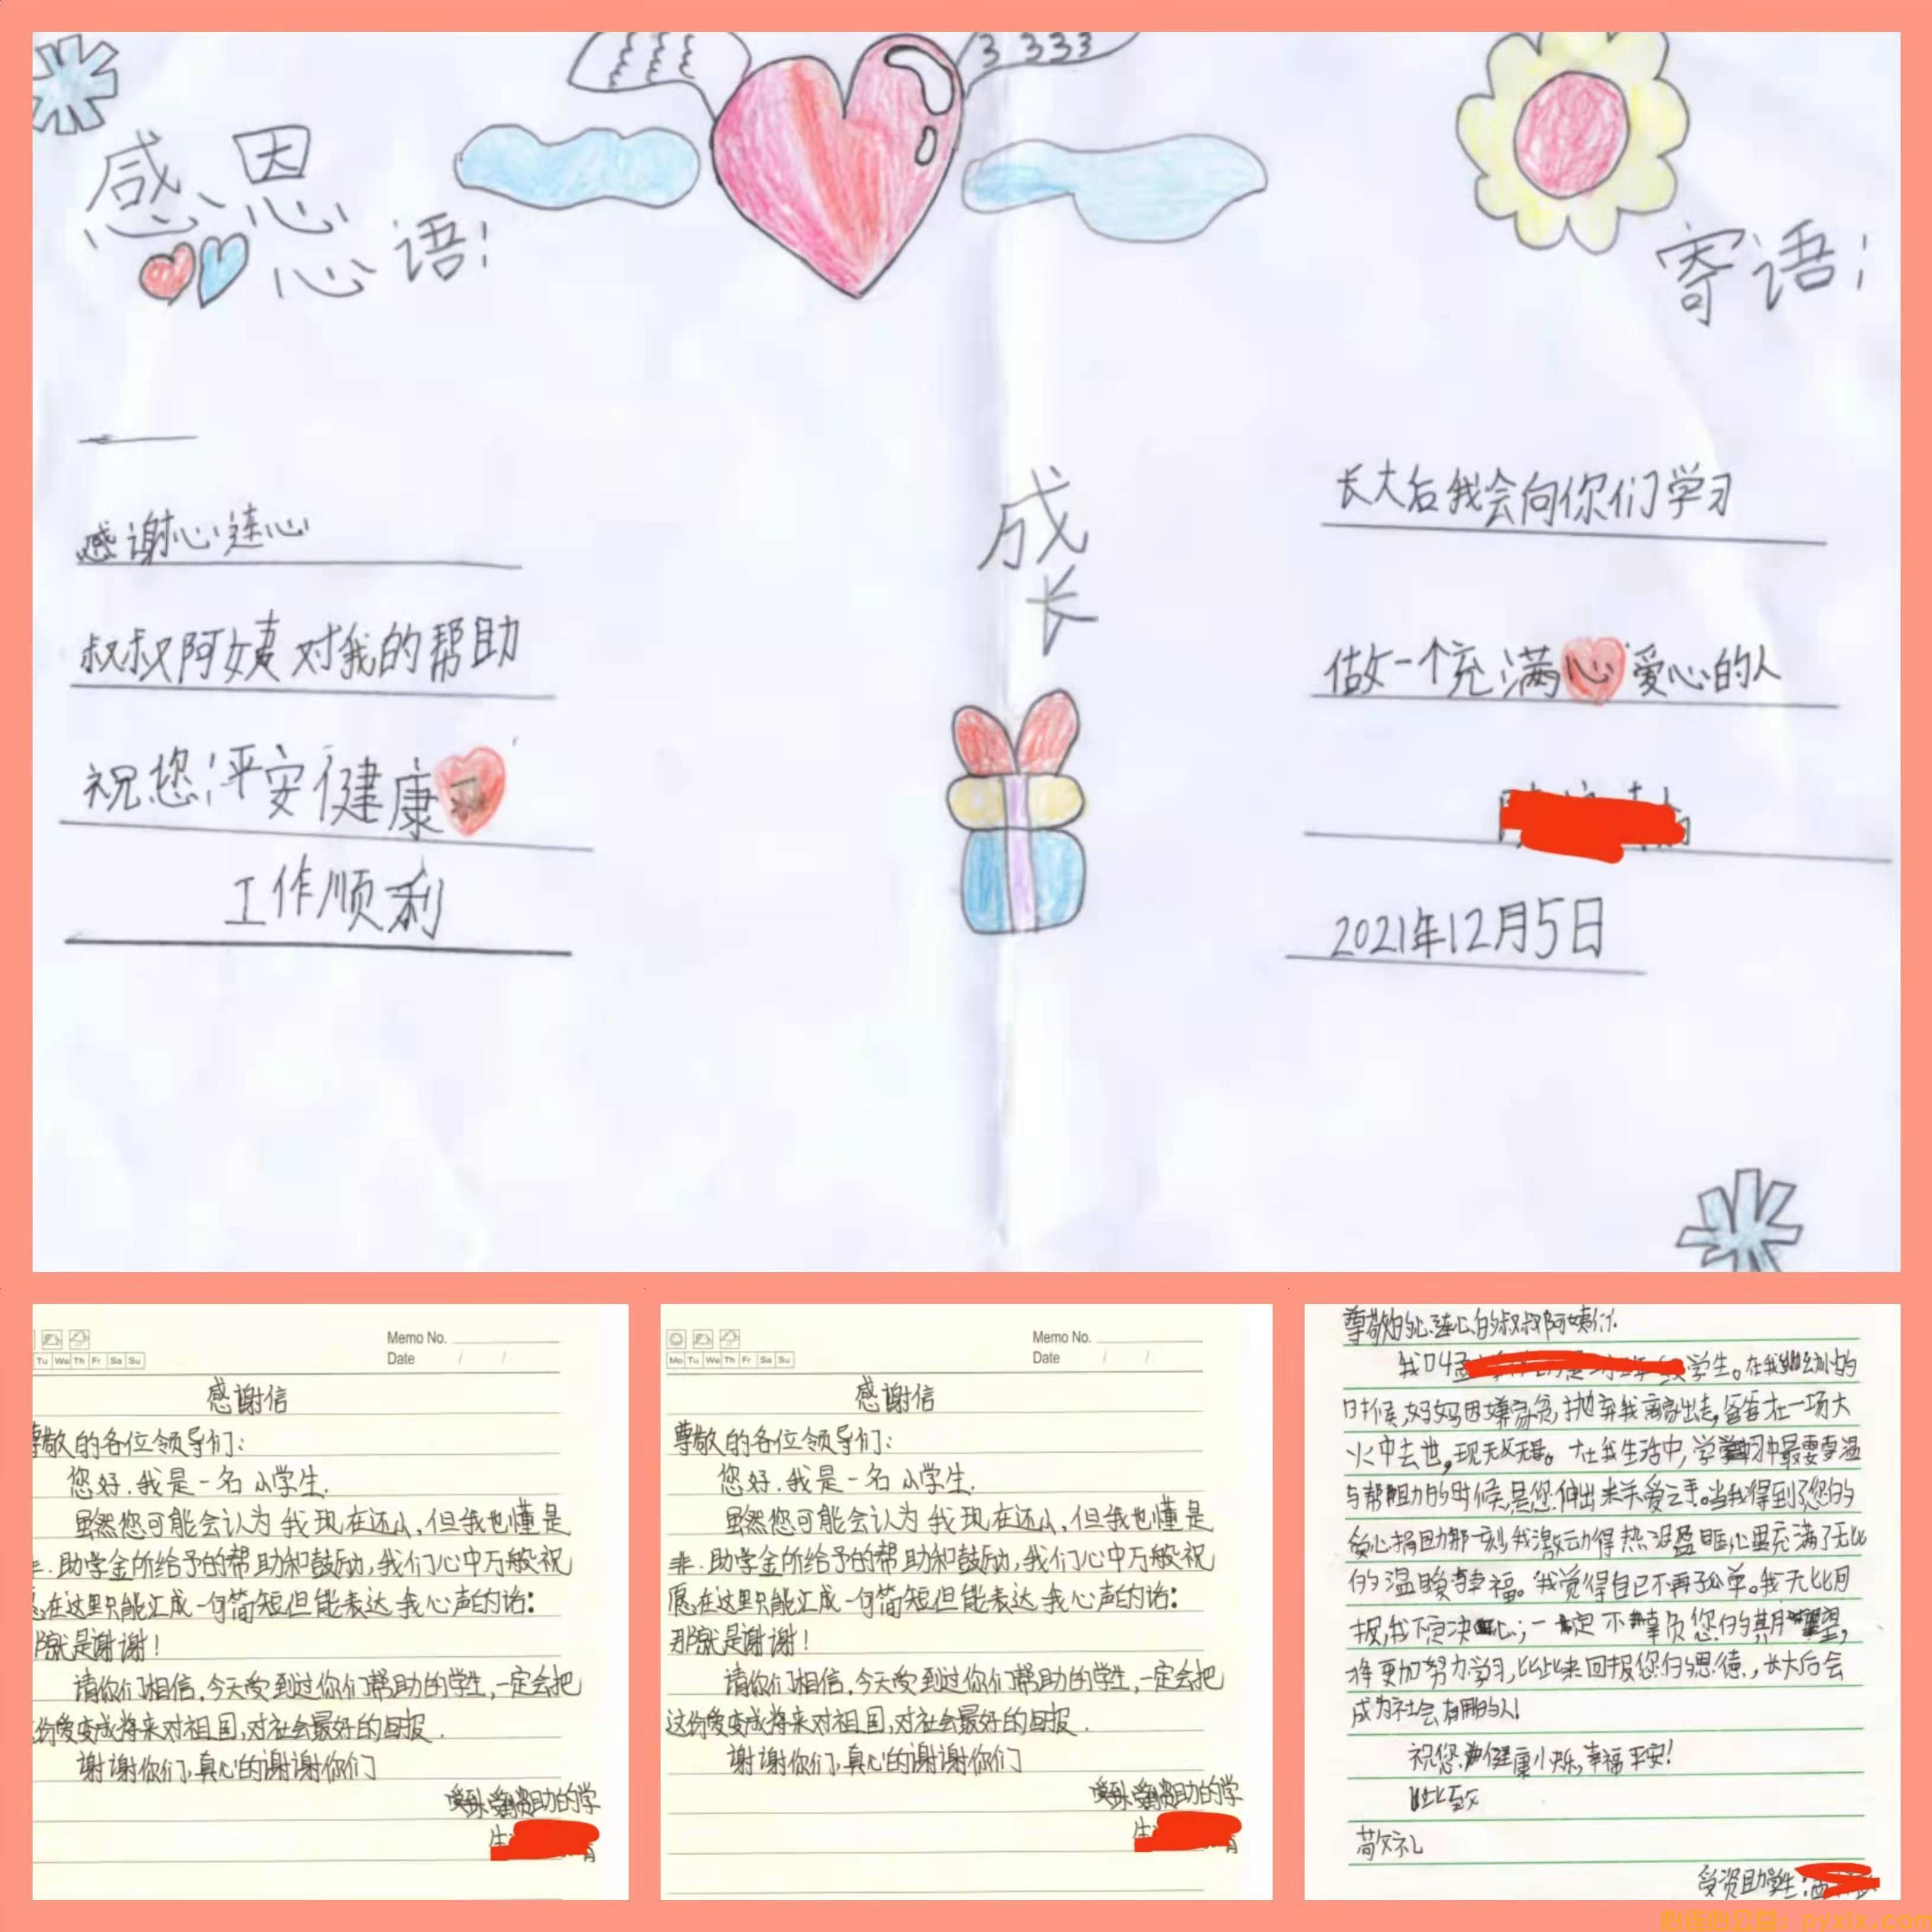 感恩
心语!
寄语;
感谢心连心
叔叔阿姨对我的帮助
祝您:平安健康
工作顺利
成
长
长大后我会向你们学习
做一个充满心爱心的人
2021年12月5日
Memo No.
Date / /
Tu We Th Fr Sa Su
感谢信
尊敬的各位领导们:
您好.我是一名小学生.
虽然您可能会认为我现在还小,但我也懂是
非.助学金所给予的帮助和鼓励,我们心中万般祝
愿在这里只能汇成一句简短但能表达我心声的话:
那就是谢谢!
请你们相信,今天受到过你们帮助的学生,一定会把
这份爱变成将来对祖国,对社会最好的回报.
谢谢你们,真心的谢谢你们
资助的学
生:
Memo No.
Date / /
Mo Tu We Th Fr Sa Su
感谢信
尊敬的各位领导们:
您好.我是一名小学生.
虽然您可能会认为我现在还小,但我也懂是
非.助学金所给予的帮助和鼓励,我们心中万般祝
愿在这里只能汇成一句简短但能表达我心声的话:
那就是谢谢!
请你们相信,今天受到过你们帮助的学生,一定会把
这份爱变成将来对祖国,对社会最好的回报.
谢谢你们,真心的谢谢你们
资助的学
生:
尊敬的心连心的叔叔阿姨们:
我叫 学生。在我幼小的
时候,妈妈因嫌家贫,抛弃我离家出走,爸爸在一场大
火中去也,现无父无母。在我生活中,学习中最需要温
与帮助的时候,是您伸出来关爱之手。当我得到了您的
爱心捐助那一刻,我激动得热泪盈眶,心里充满了无比
的温暖幸福。我觉得自己不再孤单。我无比用
报,我下定决心;一定不辜负您的期望,
将更加努力学习,以此来回报您们的恩德,长大后会
成为社会有用的人!
祝您:健康小烁,幸福平安!
此致
敬礼
受资助学生:
心连心公益: pyxlx.com